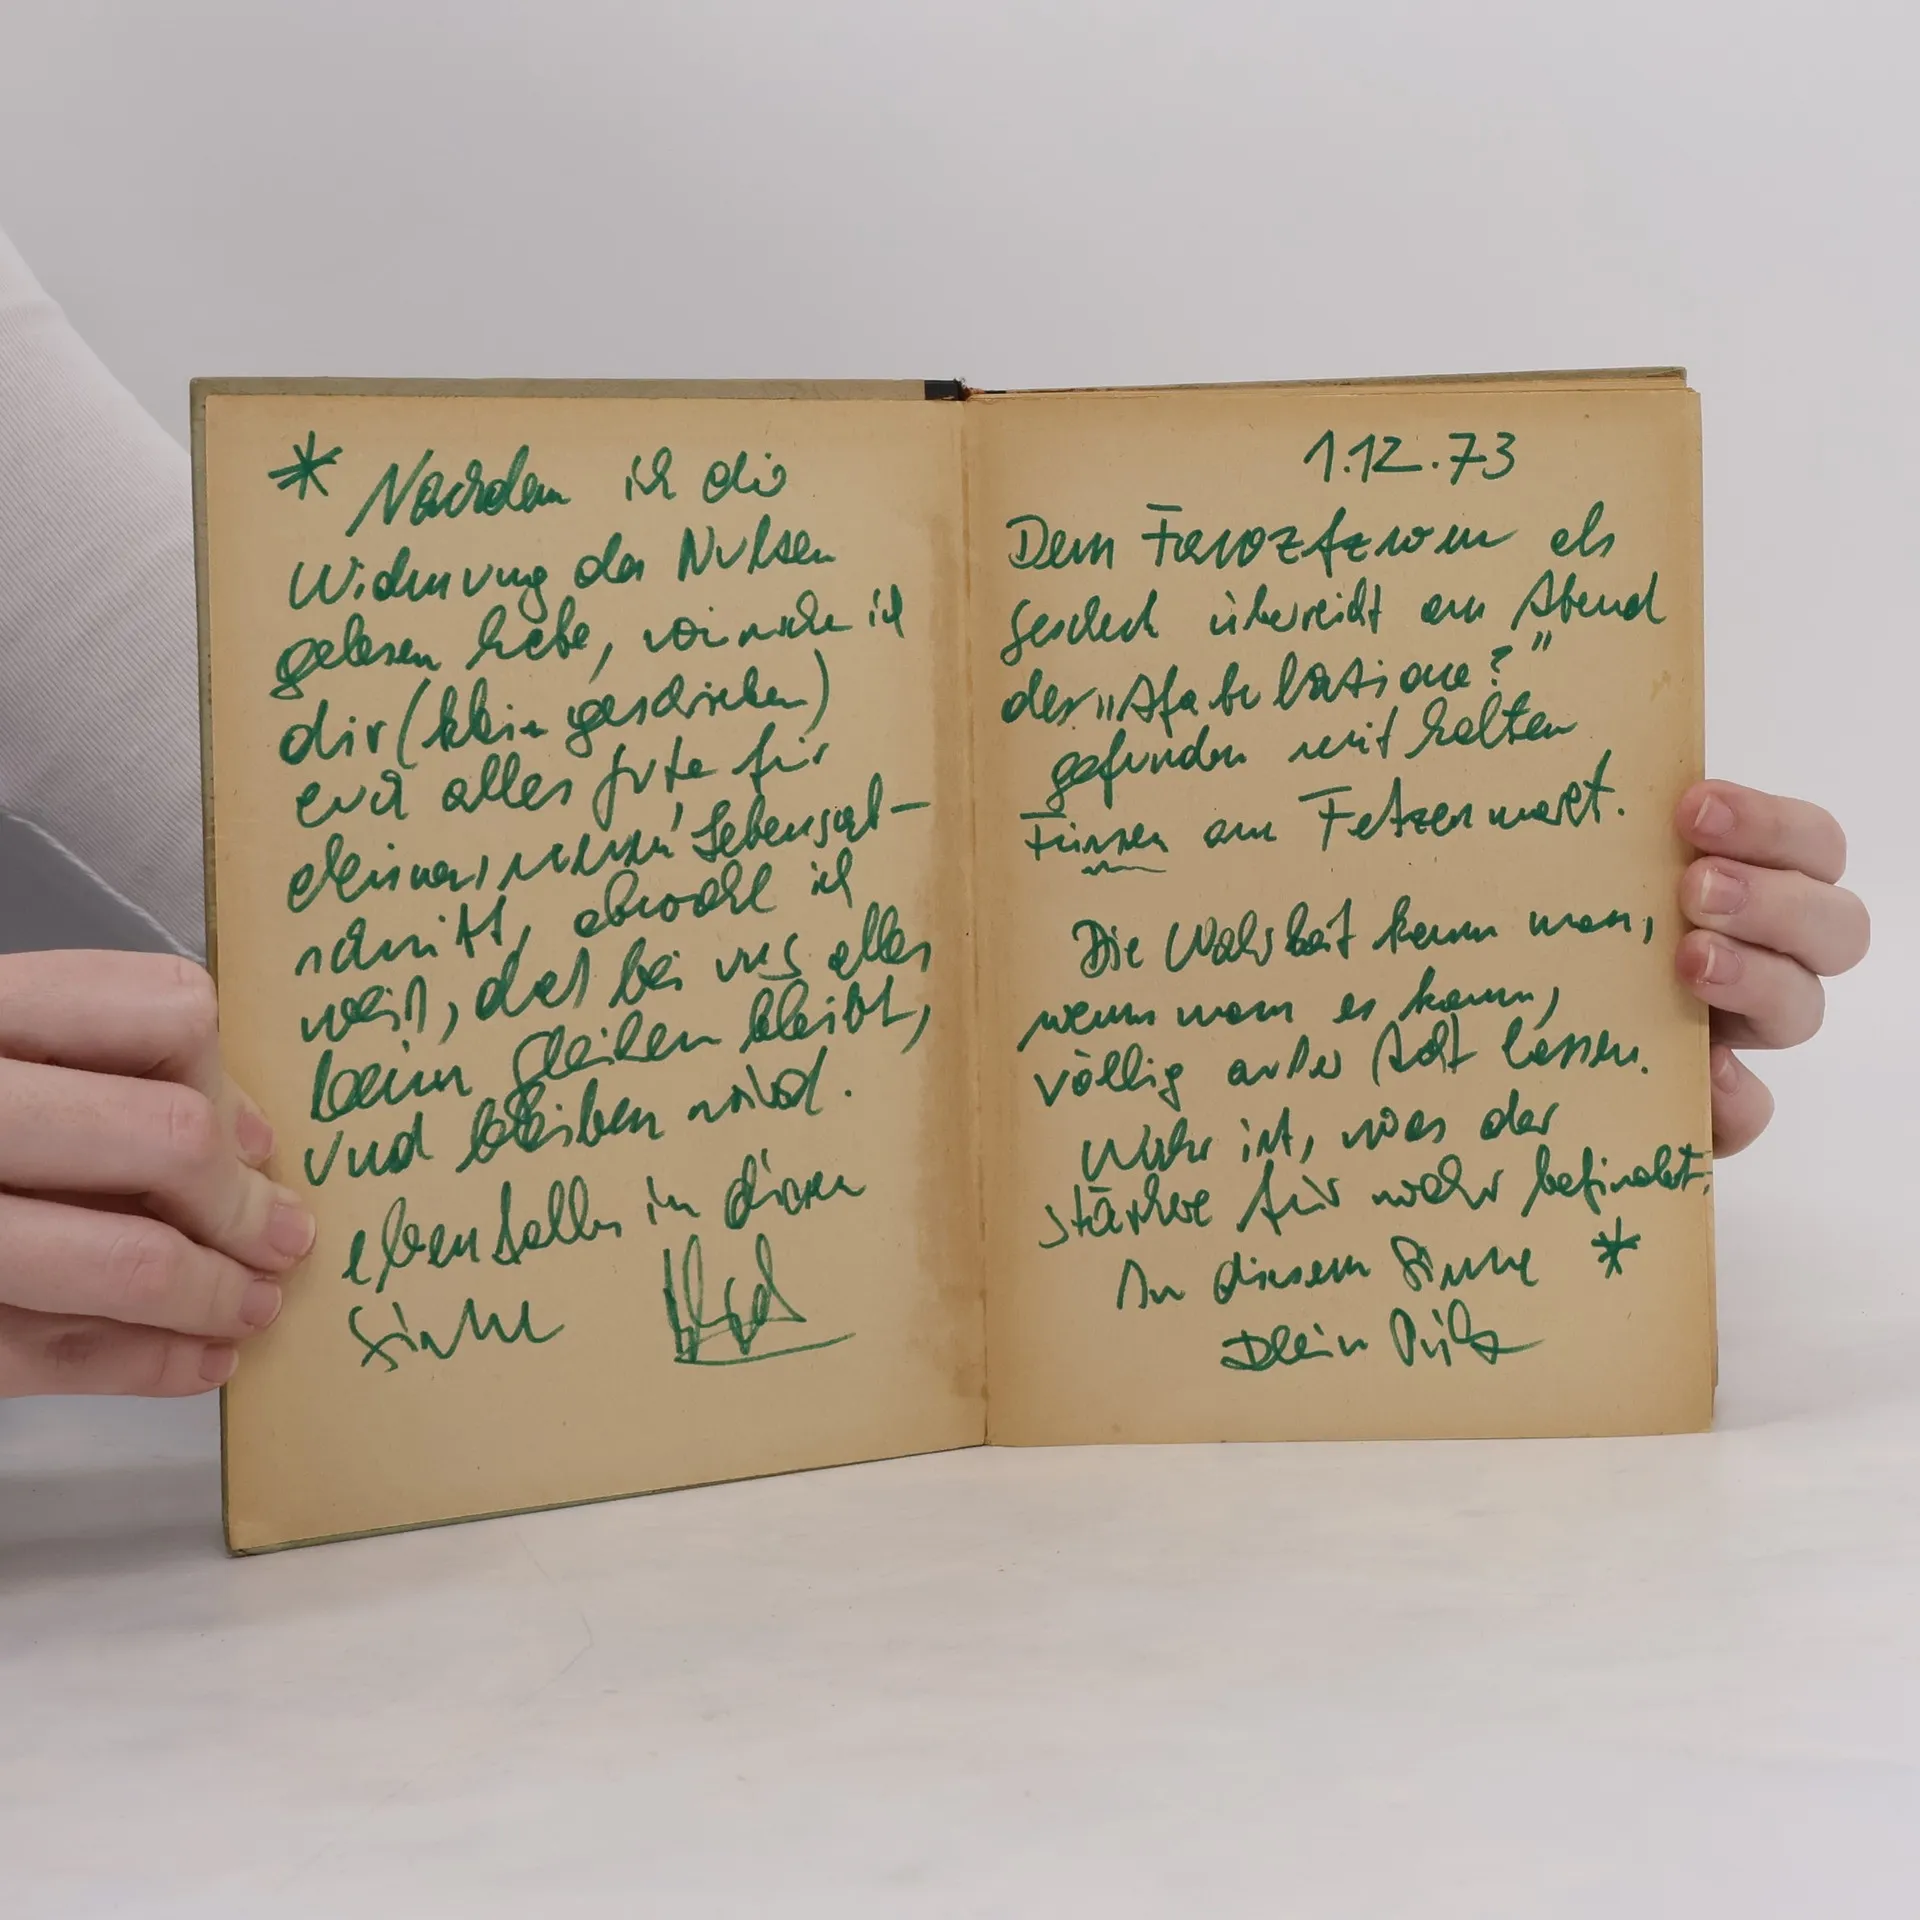 * Nachdem ich die
Widmung des
gelesen habe, wünsche ich
dir (klein geschrieben)
und alles gute für
deinen neuen Lebensab-
schnitt, obwohl ich
weiß, daß bei uns alles
beim gleichen bleibt,
und bleiben wird.
ebenfalls in diesem
Sinne
1.12.73
Dem als
überreicht am Abend
der
gefunden mit kalten
Füssen am Fetzenmarkt.
Die Wahrheit kann man,
wenn man es kann,
völlig außer Acht lassen.
Wahr ist, was der
Stärkere für wahr befindet.
In diesem Sinne *
Dein